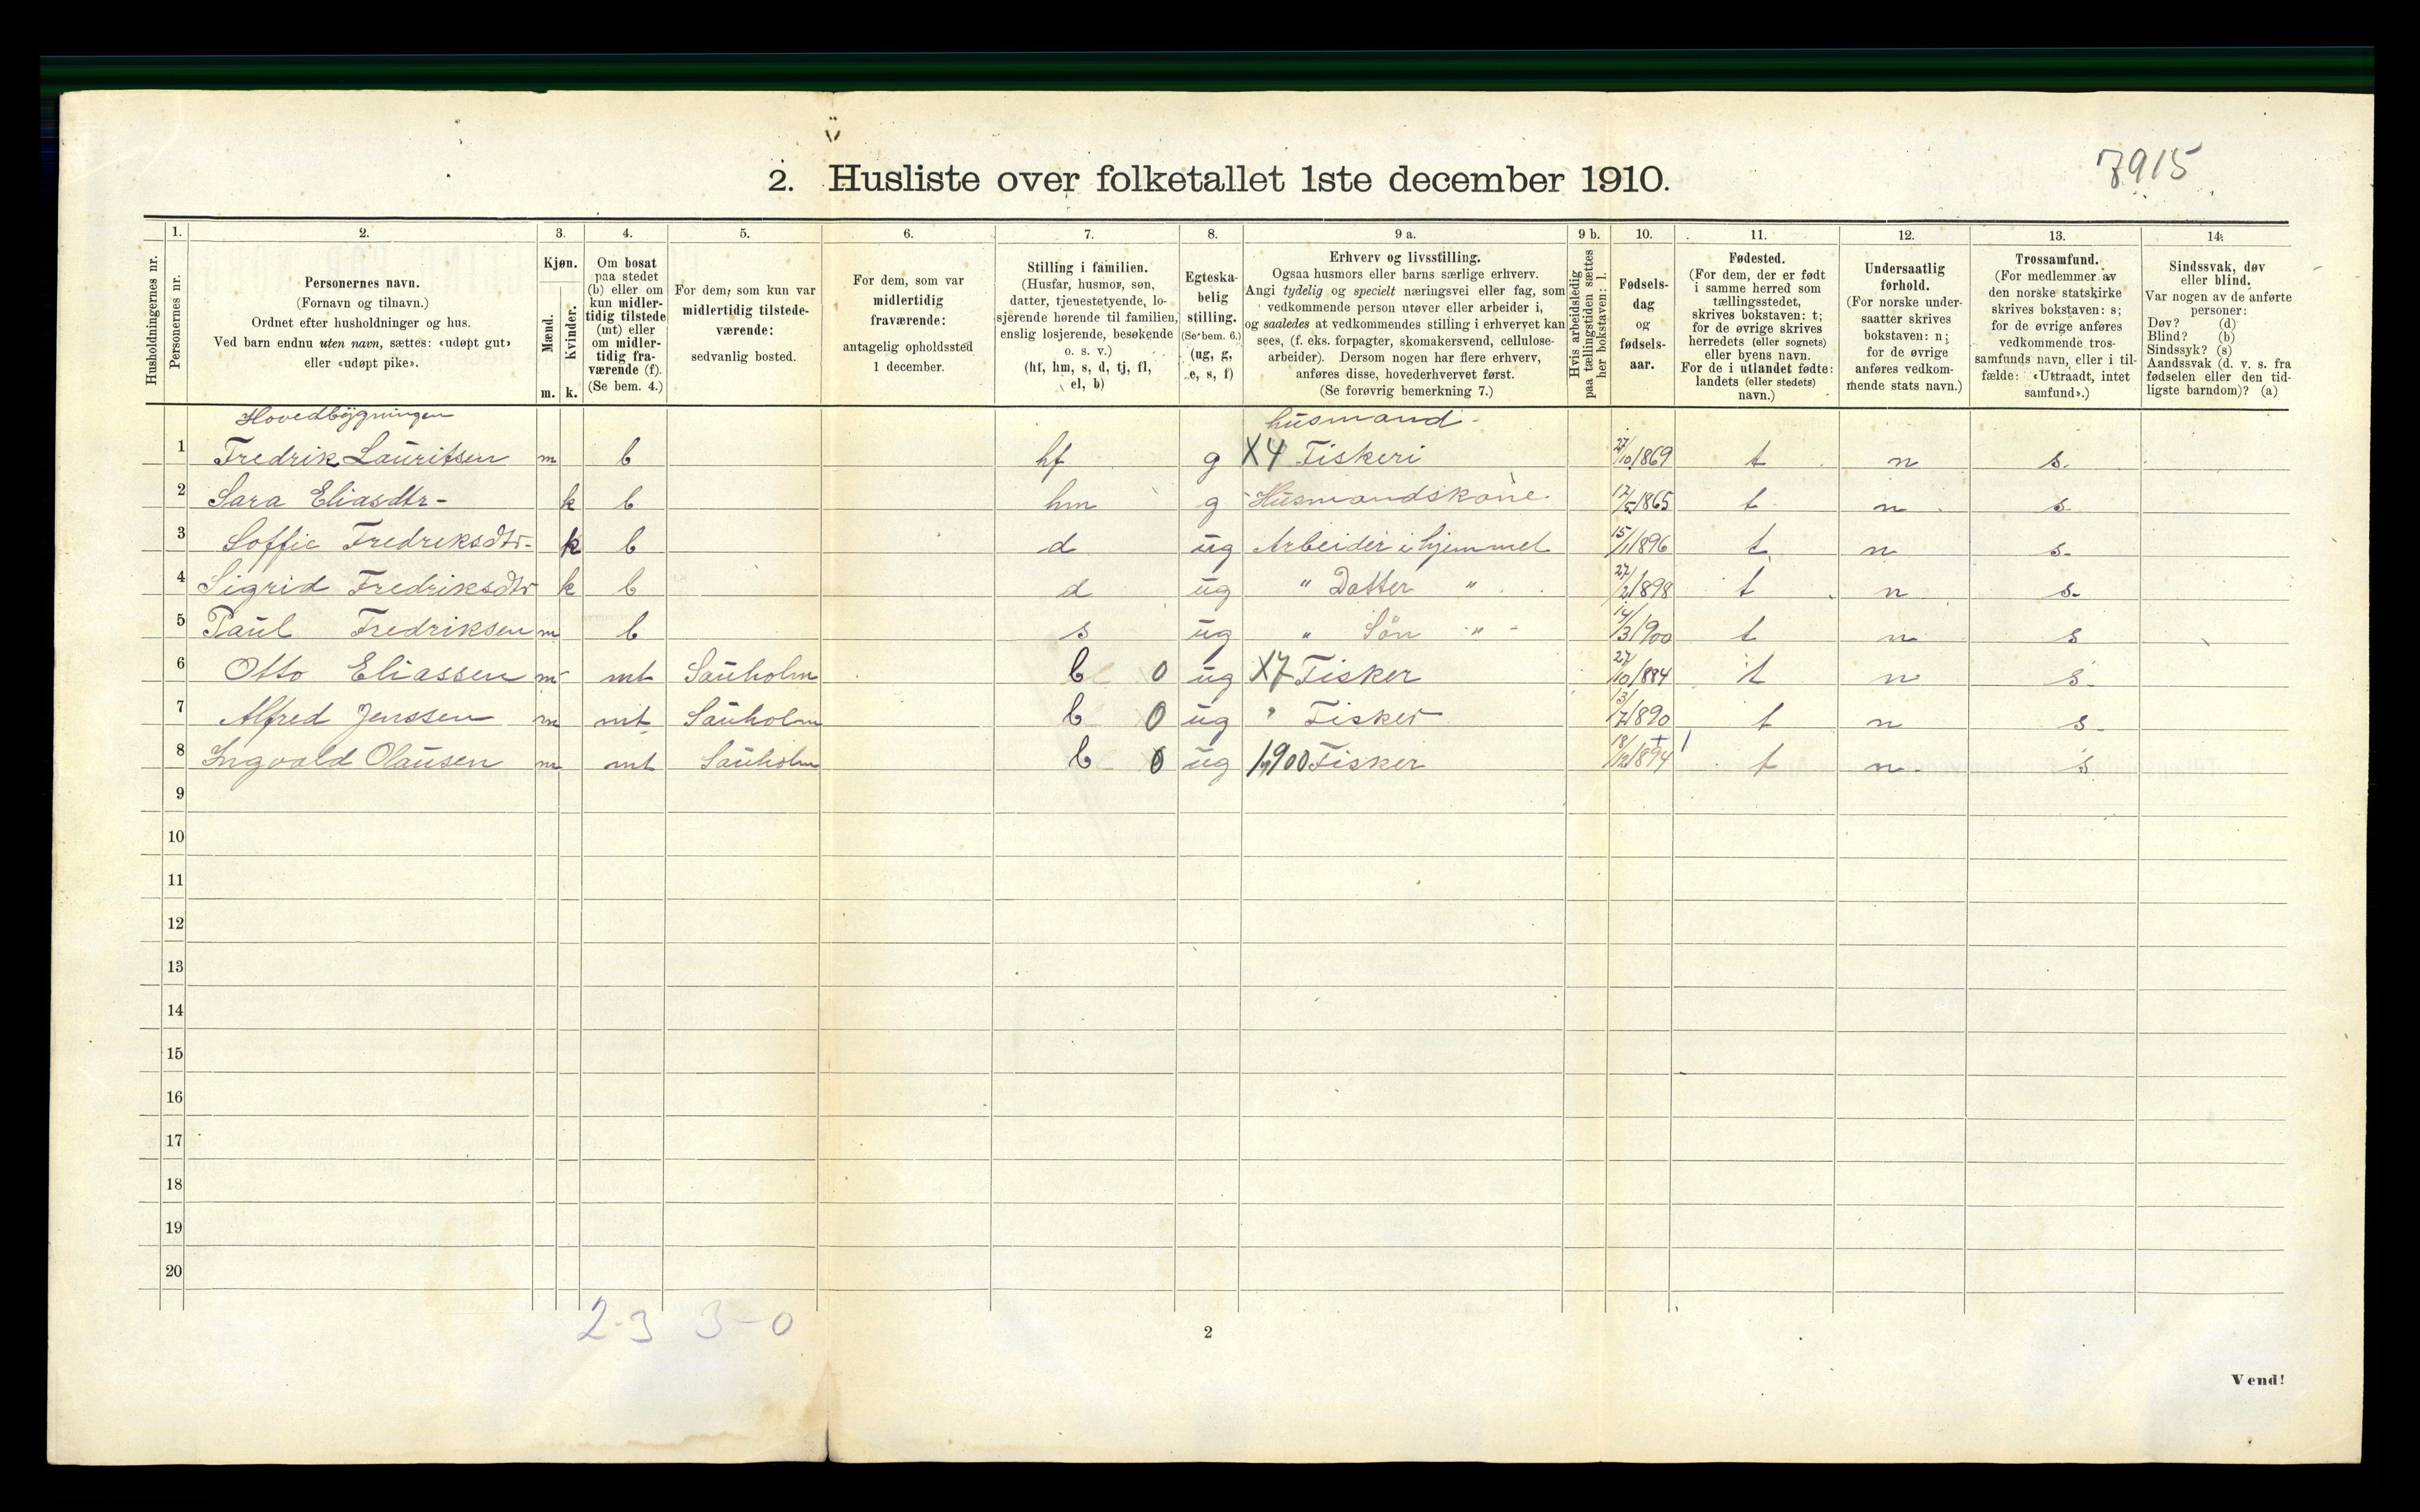 7915
2. Husliste over folketallet 1ste december 1910.
Husholdningernes nr.
1.
Personernes nr.
2.
Personernes navn.
(Fornavn og tilnavn.)
Ordnet efter husholdninger og hus.
Ved barn endnu uten navn, sættes: «udøpt gut»
eller «udøpt pike».
3.
Kjøn.
Mænd.
Kvinder.
m. k.
4.
Om bosat
paa stedet
(b) eller om
kun midler-
tidig tilstede
(mt) eller
om midler-
tidig fra-
værende (f).
(Se bem. 4.)
5.
For dem, som kun var
midlertidig tilstede-
værende:
sedvanlig bosted.
6.
For dem, som var
midlertidig
fraværende:
antagelig opholdssted
1 december.
7.
Stilling i familien.
(Husfar, husmor, søn,
datter, tjenestetyende, lo-
sjerende hørende til familien,
enslig losjerende, besøkende
o. s. v.)
(hf, hm, s, d, tj, fl,
el, b)
8.
Egteska-
belig
stilling.
(Se bem. 6.)
(ug, g,
e, s, f)
9 a.
Erhverv og livsstilling.
Ogsaa husmors eller barns særlige erhverv.
Angi tydelig og specielt næringsvei eller fag, som
vedkommende person utøver eller arbeider i,
og saaledes at vedkommendes stilling i erhvervet kan
sees, (f. eks. forpagter, skomakersvend, cellulose-
arbeider). Dersom nogen har flere erhverv,
anføres disse, hovederhvervet først.
(Se forøvrig bemerkning 7.)
9 b.
Hvis arbeidsledig
paa tællingstiden sættes
her bokstaven: l.
10.
Fødsels-
dag
og
fødsels-
aar.
11.
Fødested.
(For dem, der er født
i samme herred som
tællingsstedet,
skrives bokstaven: t;
for de øvrige skrives
herredets (eller sognets)
eller byens navn.
For de i utlandet fødte:
landets (eller stedets)
navn.)
12.
Undersaatlig
forhold.
(For norske under-
saatter skrives
bokstaven: n;
for de øvrige
anføres vedkom-
mende stats navn.)
13.
Trossamfund.
(For medlemmer av
den norske statskirke
skrives bokstaven: s;
for de øvrige anføres
vedkommende tros-
samfunds navn, eller i til-
fælde: «Uttraadt, intet
samfund».)
14.
Sindssvak, døv
eller blind.
Var nogen av de anførte
personer:
Døv? (d)
Blind? (b)
Sindssyk? (s)
Aandssvak (d. v. s. fra
fødselen eller den tid-
ligste barndom)? (a)
Hovedbygningen husmand
1 Fredrik Lauritsen m b hf g X4 Fiskeri 27/10 1869 t n s.
2 Sara Eliasdtr- k b hm g Husmandskone 17/5 1865 t n s
3 Soffie Fredreksdtr- k b d ug Arbeider i hjemmet 15/1 1896 t n s.
4 Sigrid Fredriksdtr k b d ug " Datter " 27/2 1898 t n s.
5 Paul Fredriksen m b s ug " Søn " 14/3 1900 t n s
6 Otto Eliassen m mt Sauholm b 0 ug X7 Fisker 27/10 1884 t n s
7 Alfred Jenssen m mt Sauholm b 0 ug " Fisker 13/7 1890 t n s
8 Ingvald Olausen m mt Sauholm b 0 ug 1900 Fisker 18/12 1894 t n s
9
10
11
12
13
14
15
16
17
18
19
20
2-3 3-0
2
Vend!